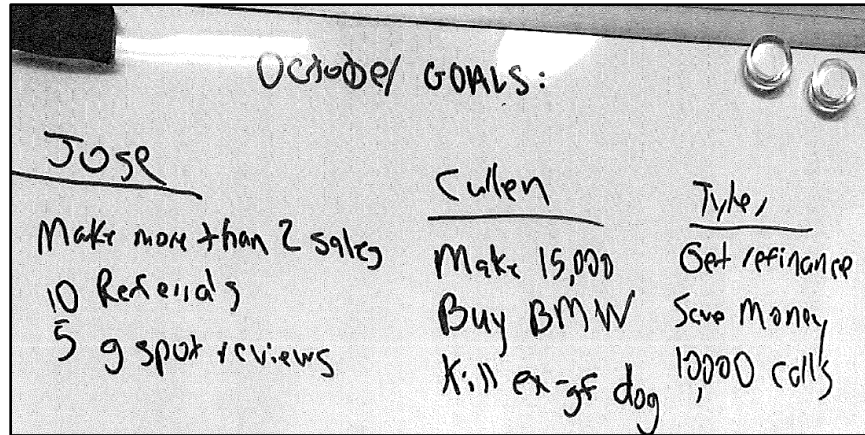 October GOALS:
Jose
Make more than 2 sales
10 Referrals
5 g spot reviews
Cullen
Make 15,000
Buy BMW
Kill ex-gf dog
Tyler
Get refinance
Save Money
10,000 calls